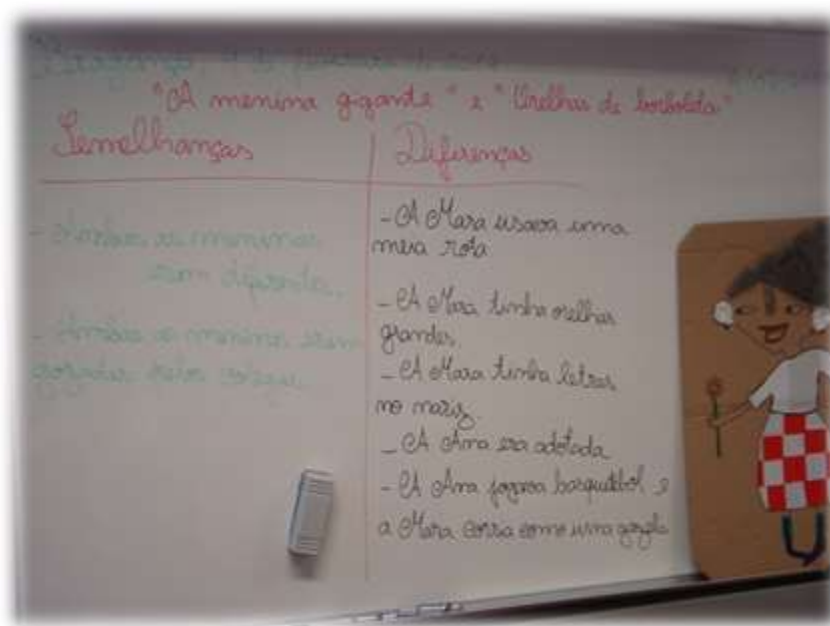 Bragança, de fevereiro de
"A menina gigante" e "Orelhas de borboleta"
Semelhanças
Diferenças
- Ambas as meninas
eram diferentes.
- Ambas as meninas eram
gozadas pelos colegas.
- A Mara usava uma
meia rota
- A Mara tinha orelhas
grandes.
- A Mara tinha letras
no nariz.
- A Ana era adotada
- A Ana jogava basquetebol e
a Mara corria como uma gazela